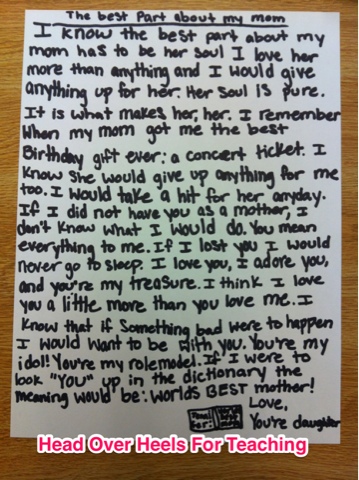 The best Part about my mom
I know the best part about my
mom has to be her soul I love her
more than anything and I would give
anything up for her. Her soul is pure.
It is what makes her, her. I remember
When my mom got me the best
Birthday gift ever: a concert ticket. I
know she would give up anything for me
too. I would take a hit for her anyday.
If I did not have you as a mother, I
don't know what I would do. You mean
everything to me. If I lost you I would
never go to sleep. I love you, I adore you,
and you're my treasure. I think I love
you a little more than you love me. I
know that if something bad were to happen
I would want to be with you. You're my
idol! You're my rolemodel. If I were to
look "You" up in the dictionary the
meaning would be: worlds BEST mother!
Love,
You're daughter
Head Over Heels For Teaching